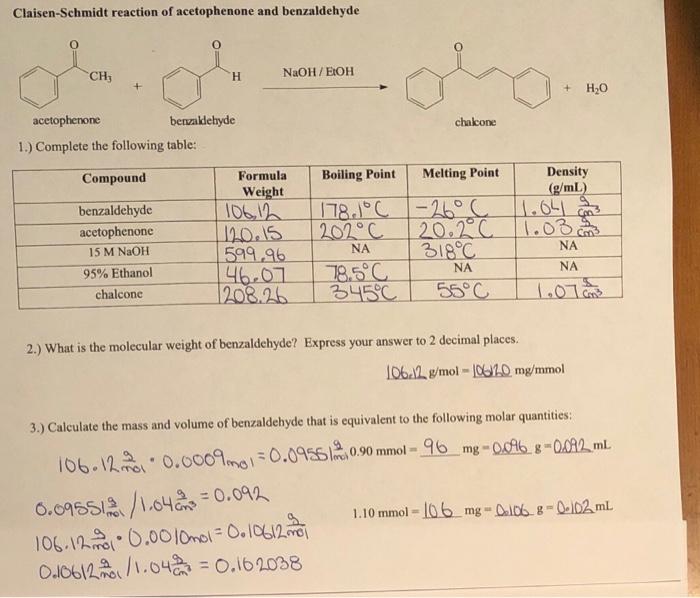 Claisen-Schmidt reaction of acetophenone and benzaldehyde
O O O
CH3 + H NaOH / EtOH + H2O
acetophenone benzaldehyde chalcone
1.) Complete the following table:
Compound Formula Weight Boiling Point Melting Point Density (g/mL)
benzaldehyde 106.12 178.1°C -26°C 1.04 g/cm³
acetophenone 120.15 202°C 20.2°C 1.03 g/cm³
15 M NaOH 599.96 NA 318°C NA
95% Ethanol 46.07 78.5°C NA NA
chalcone 208.26 345°C 55°C 1.07 g/cm³
2.) What is the molecular weight of benzaldehyde? Express your answer to 2 decimal places.
106.12 g/mol = 106120 mg/mmol
3.) Calculate the mass and volume of benzaldehyde that is equivalent to the following molar quantities:
106.12 g/mol · 0.0009 mol = 0.09551 g/mol 0.90 mmol = 96 mg = 0.096 g = 0.092 mL
0.09551 g/mol / 1.04 g/cm³ = 0.092
1.10 mmol = 106 mg = 0.106 g = 0.102 mL
106.12 g/mol · 0.0010 mol = 0.10612 g/mol
0.10612 g/mol / 1.04 g/cm³ = 0.102038